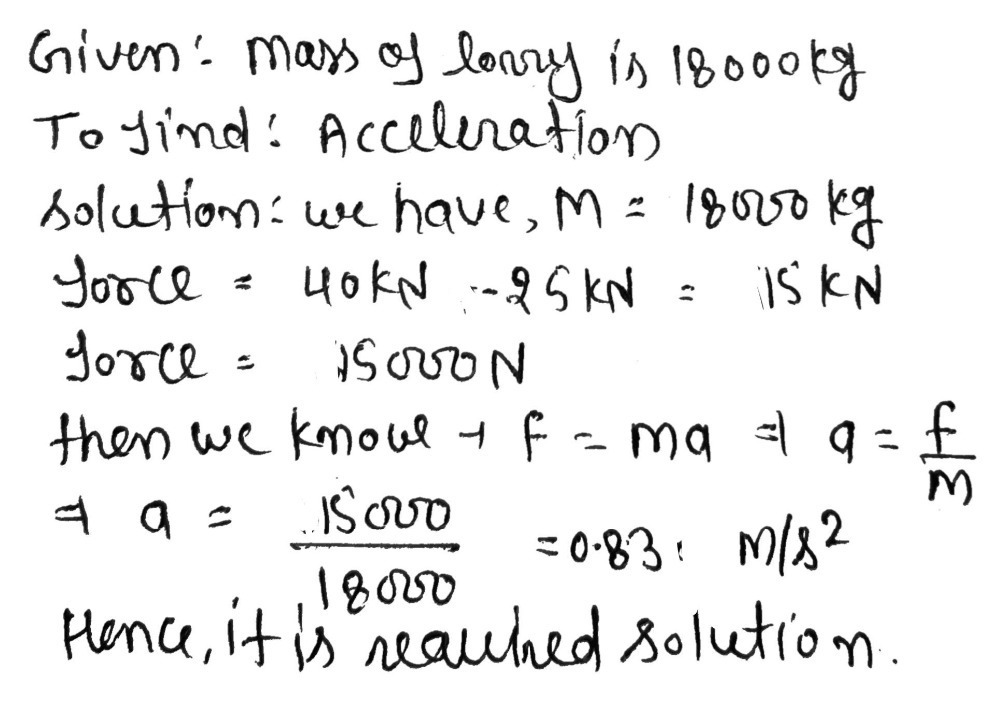 Given: Mass of lorry is 18000kg
To find: Acceleration
Solution: we have, M = 18000 kg
force = 40kN - 25 kN = 15 KN
force = 15000N
then we know → f = ma ⇒ a = f/m
⇒ a = 15000/18000 = 0.83 m/s²
Hence, it is required solution.